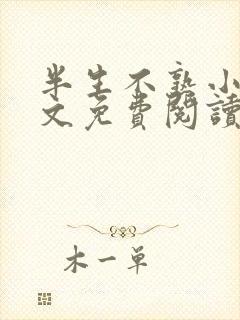 半生不熟小
文免費閱讀
木一單